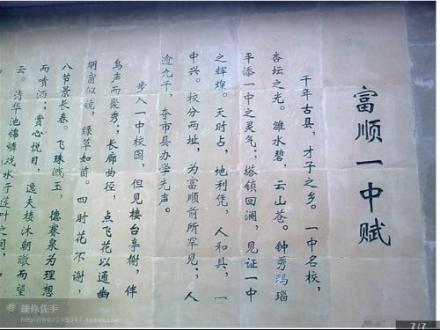 富顺一中赋
千年古县,才子之乡。一中名校,
杏坛之光。雒水碧,云山苍。钟秀玛瑙
平添一中之灵气;塔镇回澜,见证一中
之辉煌。天时占,地利凭,人和具,一
中兴。校分两址,为富顺前所罕见;人
逾九千,夺市县办学先声。
步入一中校园,但见楼台亭榭,伴
鸟声而聚秀;长廊曲径,点飞花以通幽
明窗似镜,绿草如茵。四时花不谢,
八节景长春。飞珠溅玉,德寰泉为理想
而喷洒;赏心悦目,逸夫楼沐朝暾而望
云。清华池锦鳞戏水于莲叶之间,
7/7